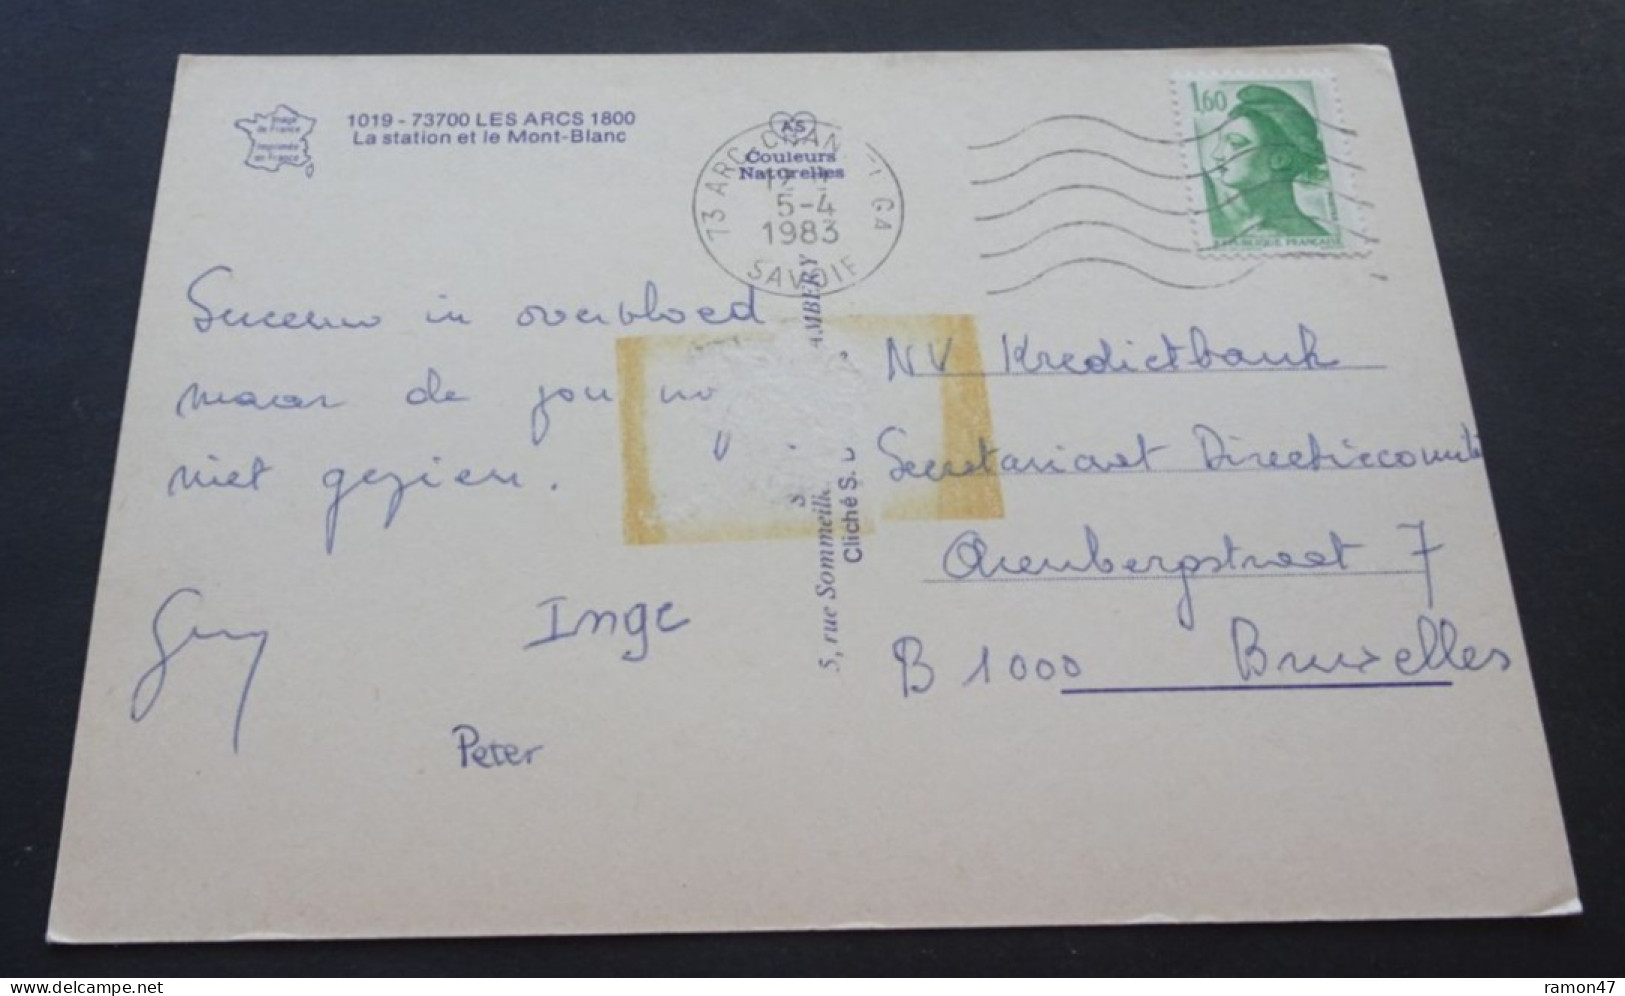 Image
de France
Imprimée
en France
1019 - 73700 LES ARCS 1800
La station et le Mont-Blanc
AS
Couleurs
Naturelles
73 ARC
5-4
1983
SAVOIE
1,60
REPUBLIQUE FRANÇAISE
in overvloed
maar de
niet gezien.
Guy
Inge
Peter
5, rue Sommeill
AMBÉRY
Cliché S.
NV Kredietbank
Secretariaat Directiecomité
Arenbergstraat 7
B 1000 Bruxelles
delcampe.net
ramon47